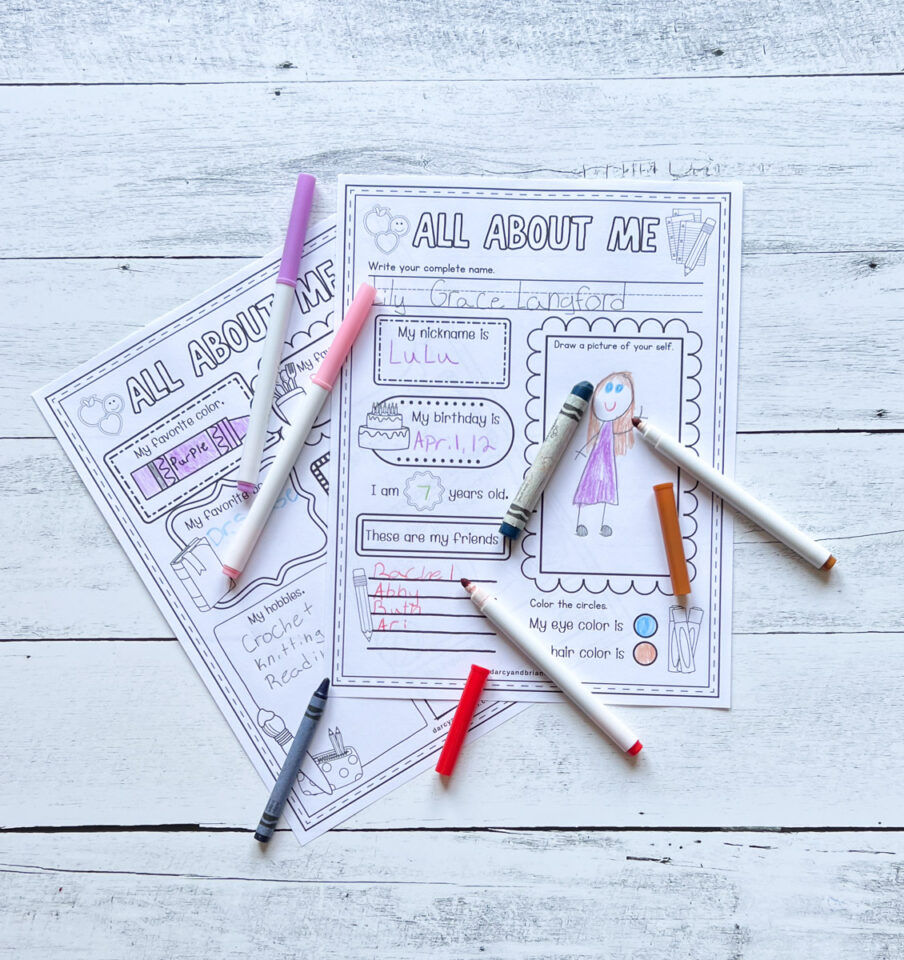 ALL ABOUT ME
Write your complete name.
Lily Grace Langford
My nickname is
LuLu
Draw a picture of your self.
My birthday is
Apr.1,12
I am 7 years old.
These are my friends
Rachel
Abby
Ruth
Ari
Color the circles.
My eye color is
hair color is
darcyandbrian
ALL ABOUT ME
My favorite color.
PurPle
My fav
My favorite
My hobbies.
Crochet
knitting
Readi
darcy